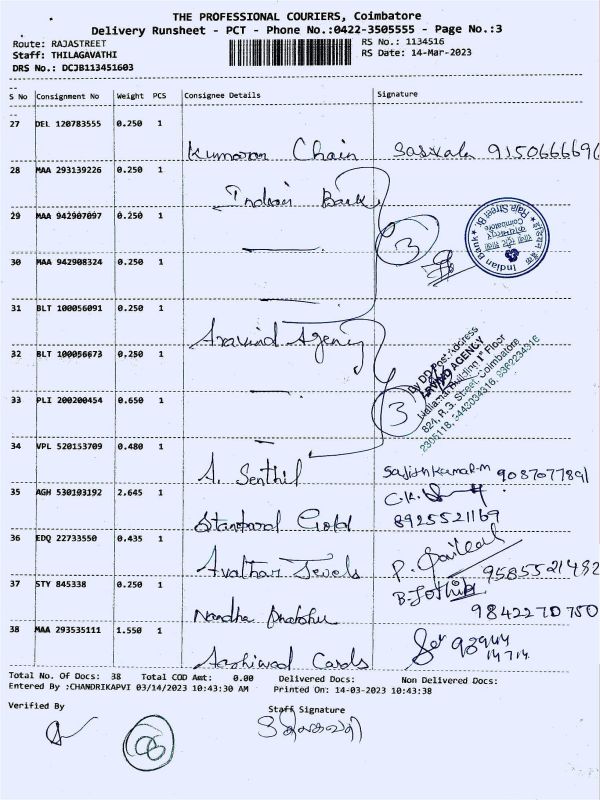 THE PROFESSIONAL COURIERS, Coimbatore
Delivery Runsheet - PCT - Phone No.:0422-3505555 - Page No.:3
Route: RAJASTREET
RS No.: 1134516
Staff: THILAGAVATHI
RS Date: 14-Mar-2023
DRS No.: DCJB113451603
S No Consignment No Weight PCS Consignee Details Signature
27 DEL 120783555 0.250 1
Kumaran Chain 9150666696
28 MAA 293139226 0.250 1
Indian Bank
29 MAA 942907097 0.250 1
3
Indian Bank
Raja Street Br.
Coimbatore
30 MAA 942908324 0.250 1
31 BLT 100056091 0.250 1
Aravind Agency
32 BLT 100056673 0.250 1
AGENCY
1st Floor
824, R. S. Street, Coimbatore
33 PLI 200200454 0.650 1
3
34 VPL 520153709 0.480 1
A. Senthil Sajithkumar.M 9087077891
35 AGH 530103192 2.645 1
C.K.
Standard Gold 8925521169
36 EDQ 22733550 0.435 1
Avathar Jewels P. 9585521482
37 STY 845338 0.250 1
B. Jothi
Nandha 9842270750
38 MAA 293535111 1.550 1
93944
14714
Cards
Total No. Of Docs: 38 Total COD Amt: 0.00 Delivered Docs: Non Delivered Docs:
Entered By :CHANDRIKAPVI 03/14/2023 10:43:30 AM Printed On: 14-03-2023 10:43:38
Verified By
Staff Signature
திலகவதி